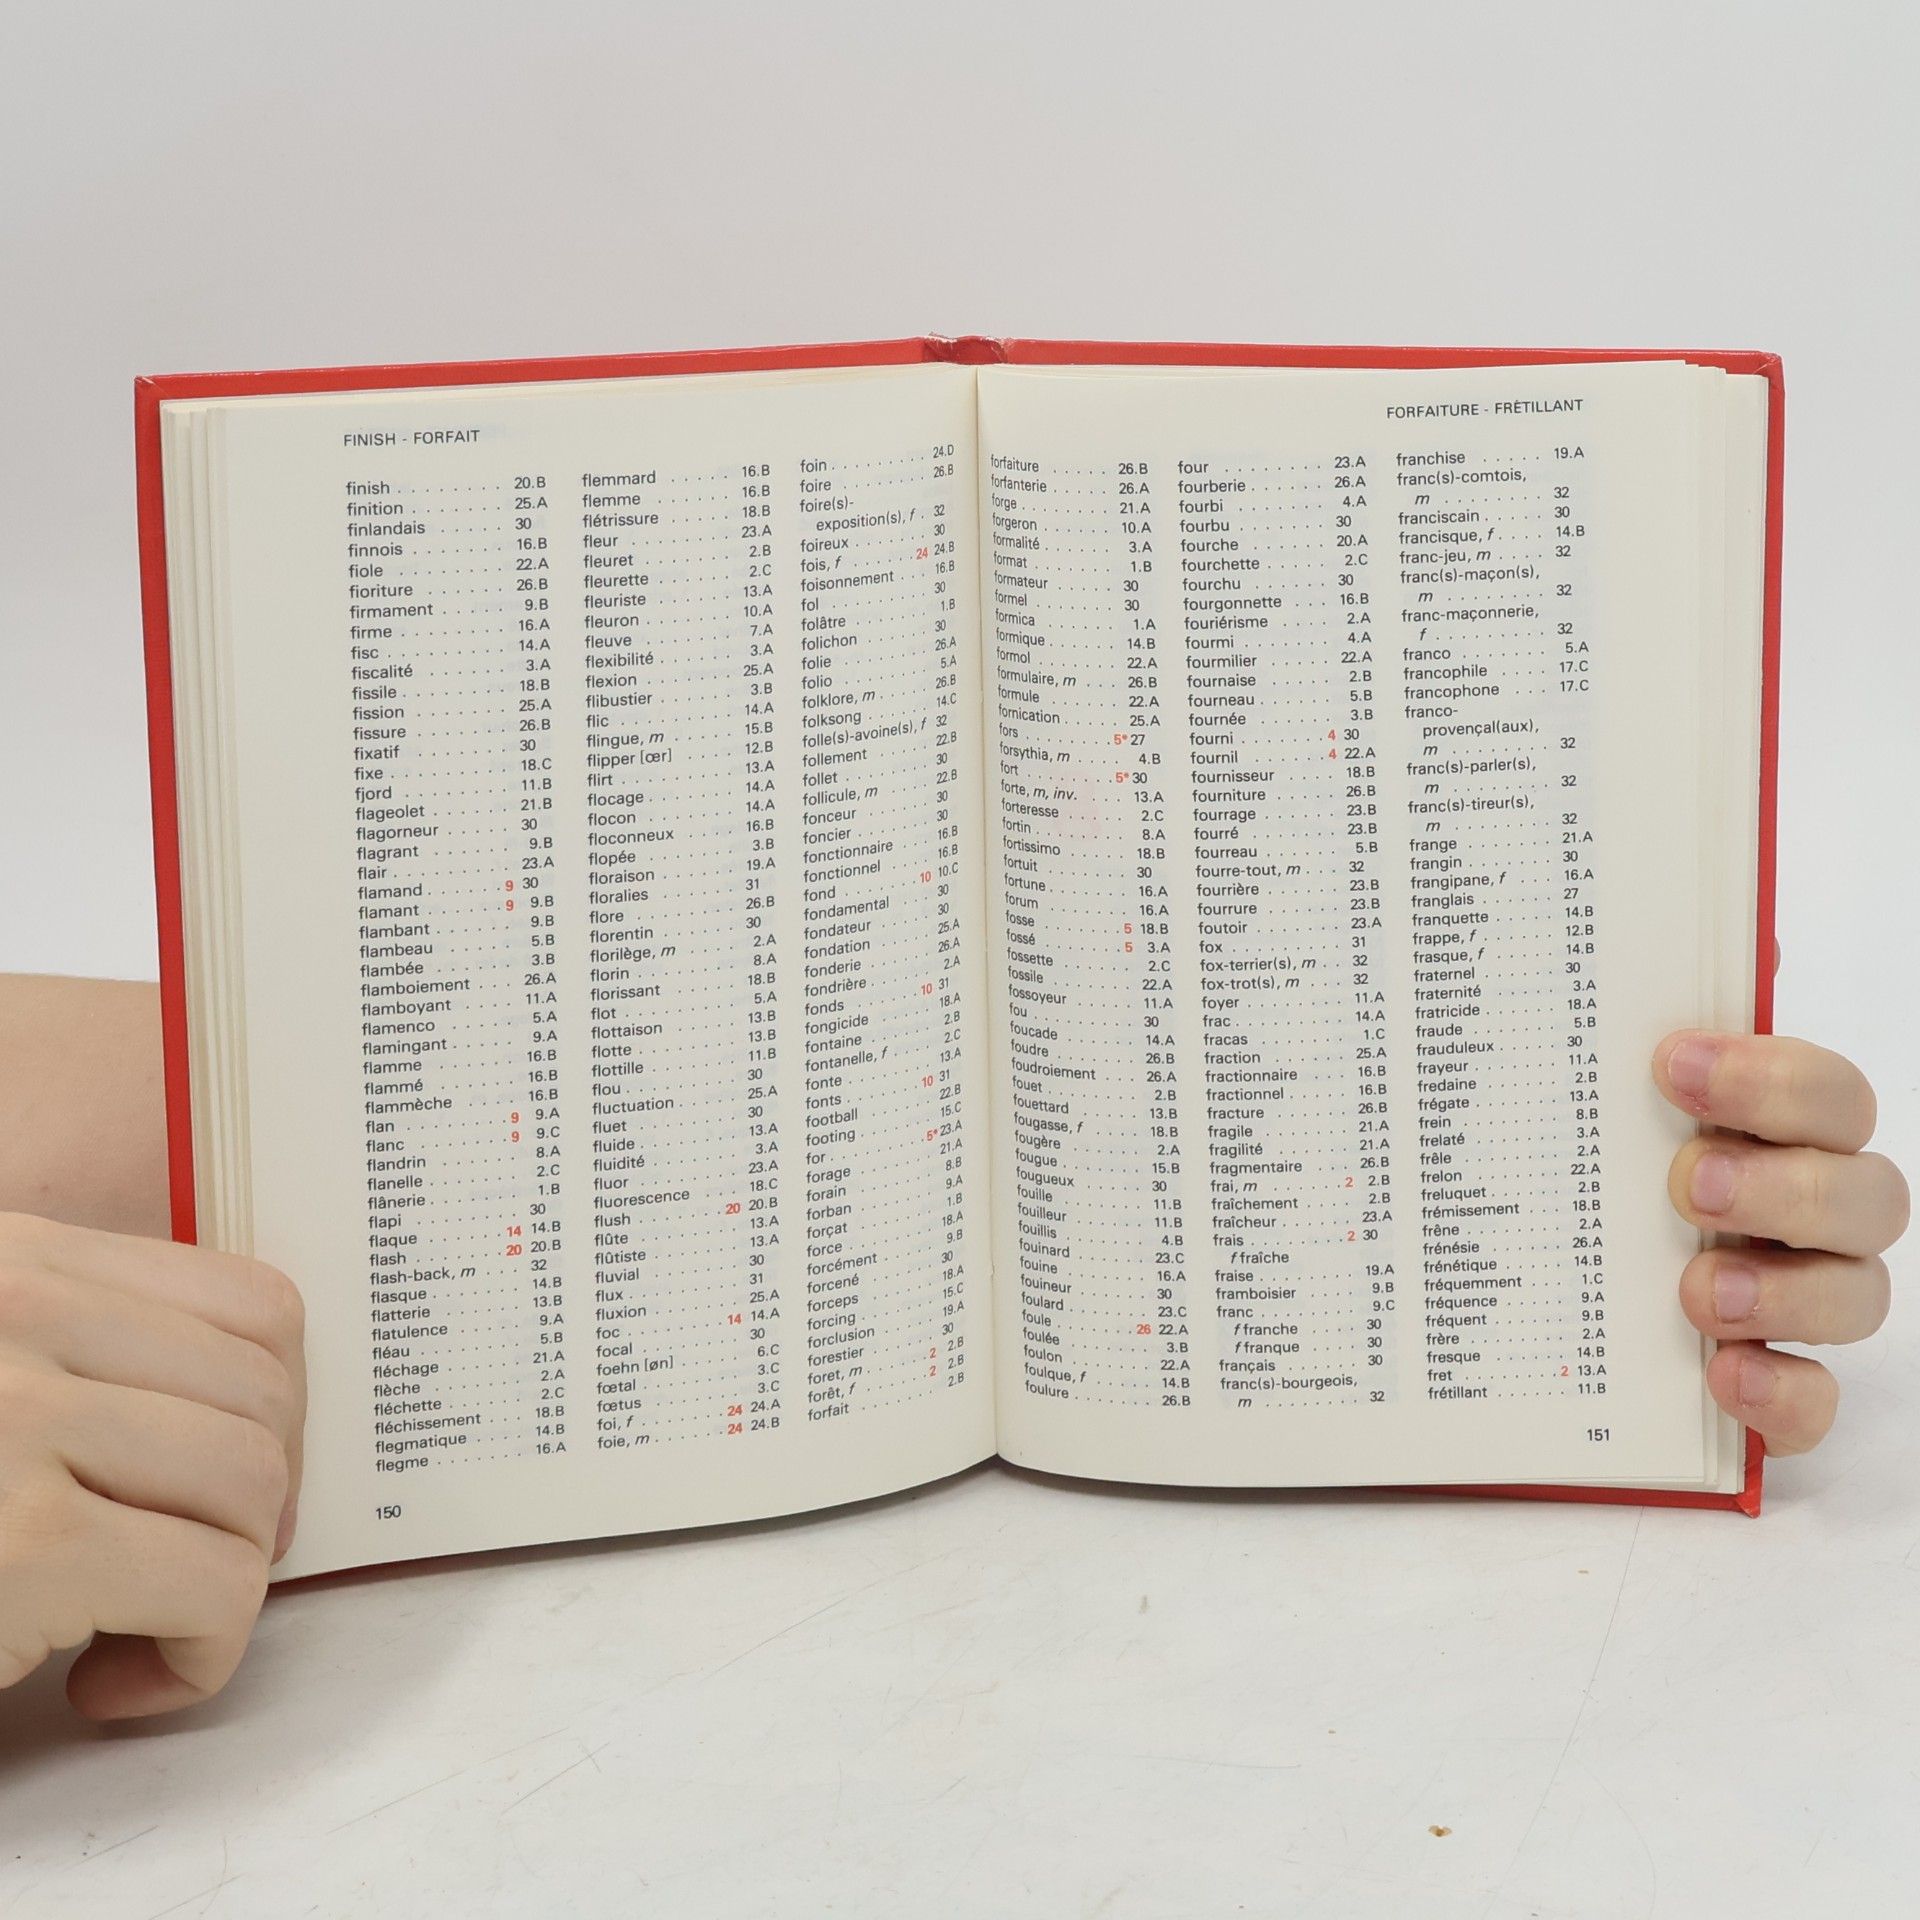 FINISH - FORFAIT
finish 20.B
finition 25.A
finlandais 30
finnois 16.B
fiole 22.A
fioriture 26.B
firmament 9.B
firme 16.A
fisc 14.A
fiscalité 3.A
fissile 18.B
fission 25.A
fissure 26.B
fixatif 30
fixe 18.C
fjord 11.B
flageolet 21.B
flagorneur 30
flagrant 9.B
flair 23.A
flamand 9 30
flamant 9 9.B
flambant 9.B
flambeau 5.B
flambée 3.B
flamboiement 26.A
flamboyant 11.A
flamenco 5.A
flamingant 9.A
flamme 16.B
flammé 16.B
flammèche 16.B
flan 9 9.A
flanc 9 9.C
flandrin 8.A
flanelle 2.C
flânerie 1.B
flapi 30
flaque 14 14.B
flash 20 20.B
flash-back, m 32
flasque 14.B
flatterie 13.B
flatulence 9.A
fléau 5.B
fléchage 21.A
flèche 2.A
fléchette 2.C
fléchissement 18.B
flegmatique 14.B
flegme 16.A
flemmard 16.B
flemme 16.B
flétrissure 18.B
fleur 23.A
fleuret 2.B
fleurette 2.C
fleuriste 13.A
fleuron 10.A
fleuve 7.A
flexibilité 3.A
flexion 25.A
flibustier 3.B
flic 14.A
flingue, m 15.B
flipper [œr] 12.B
flirt 13.A
flocage 14.A
flocon 14.A
floconneux 16.B
flopée 3.B
floraison 19.A
floralies 31
flore 26.B
florentin 30
florilège, m 2.A
florin 8.A
florissant 18.B
flot 5.A
flottaison 13.B
flotte 13.B
flottille 11.B
flou 30
fluctuation 25.A
fluet 30
fluide 13.A
fluidité 3.A
fluor 23.A
fluorescence 18.C
flush 20 20.B
flûte 13.A
flûtiste 13.A
fluvial 30
flux 31
fluxion 25.A
foc 14 14.A
focal 30
foehn [øn] 6.C
fœtal 3.C
fœtus 3.C
foi, f 24 24.A
foie, m 24 24.B
foin 24.D
foire 26.B
foire(s)-
exposition(s), f 32
foireux 30
fois, f 24 24.B
foisonnement 16.B
fol 30
folâtre 1.B
folichon 30
folie 26.A
folio 5.A
folklore, m 26.B
folksong 14.C
folle(s)-avoine(s), f 32
follement 22.B
follet 30
follicule, m 22.B
fonceur 30
foncier 30
fonctionnaire 16.B
fonctionnel 16.B
fond 10 10.C
fondamental 30
fondateur 30
fondation 25.A
fonderie 26.A
fondrière 2.A
fonds 10 31
fongicide 18.A
fontaine 2.B
fontanelle, f 2.C
fonte 13.A
fonts 10 31
football 22.B
footing 15.C
for 5* 23.A
forage 21.A
forain 8.B
forban 9.A
forçat 1.B
force 18.A
forcément 9.B
forcené 30
forceps 18.A
forcing 15.C
forclusion 19.A
forestier 30
foret, m 2 2.B
forêt, f 2 2.B
forfait 2.B
150
FORFAITURE - FRÉTILLANT
forfaiture 26.B
forfanterie 26.A
forge 21.A
forgeron 10.A
formalité 3.A
format 1.B
formateur 30
formel 30
formica 1.A
formique 14.B
formol 22.A
formulaire, m 26.B
formule 22.A
fornication 25.A
fors 5* 27
forsythia, m 4.B
fort 5* 30
forte, m, inv. 13.A
forteresse 2.C
fortin 8.A
fortissimo 18.B
fortuit 30
fortune 16.A
forum 16.A
fosse 5 18.B
fossé 5 3.A
fossette 2.C
fossile 22.A
fossoyeur 11.A
fou 30
foucade 14.A
foudre 26.B
foudroiement 26.A
fouet 2.B
fouettard 13.B
fougasse, f 18.B
fougère 2.A
fougue 15.B
fougueux 30
fouille 11.B
fouilleur 11.B
fouillis 4.B
fouinard 23.C
fouine 16.A
fouineur 30
foulard 23.C
foule 26 22.A
foulée 3.B
foulon 22.A
foulque, f 14.B
foulure 26.B
four 23.A
fourberie 26.A
fourbi 4.A
fourbu 30
fourche 20.A
fourchette 2.C
fourchu 30
fourgonnette 16.B
fouriérisme 2.A
fourmi 4.A
fourmilier 22.A
fournaise 2.B
fourneau 5.B
fournée 3.B
fourni 4 30
fournil 4 22.A
fournisseur 18.B
fourniture 26.B
fourrage 23.B
fourré 23.B
fourreau 5.B
fourre-tout, m 32
fourrière 23.B
fourrure 23.B
foutoir 23.A
fox 31
fox-terrier(s), m 32
fox-trot(s), m 32
foyer 11.A
frac 14.A
fracas 1.C
fraction 25.A
fractionnaire 16.B
fractionnel 16.B
fracture 26.B
fragile 21.A
fragilité 21.A
fragmentaire 26.B
frai, m 2 2.B
fraîchement 2.B
fraîcheur 23.A
frais 2 30
f fraîche
fraise 19.A
framboisier 9.B
franc 9.C
f franche 30
f franque 30
français 30
franc(s)-bourgeois,
m 32
franchise 19.A
franc(s)-comtois,
m 32
franciscain 30
francisque, f 14.B
franc-jeu, m 32
franc(s)-maçon(s),
m 32
franc-maçonnerie,
f 32
franco 5.A
francophile 17.C
francophone 17.C
franco-
provençal(aux),
m 32
franc(s)-parler(s),
m 32
franc(s)-tireur(s),
m 32
frange 21.A
frangin 30
frangipane, f 16.A
franglais 27
franquette 14.B
frappe, f 12.B
frasque, f 14.B
fraternel 30
fraternité 3.A
fratricide 18.A
fraude 5.B
frauduleux 30
frayeur 11.A
fredaine 2.B
frégate 13.A
frein 8.B
frelaté 3.A
frêle 2.A
frelon 22.A
freluquet 2.B
frémissement 18.B
frêne 2.A
frénésie 26.A
frénétique 14.B
fréquemment 1.C
fréquence 9.A
fréquent 9.B
frère 2.A
fresque 14.B
fret 2 13.A
frétillant 11.B
151